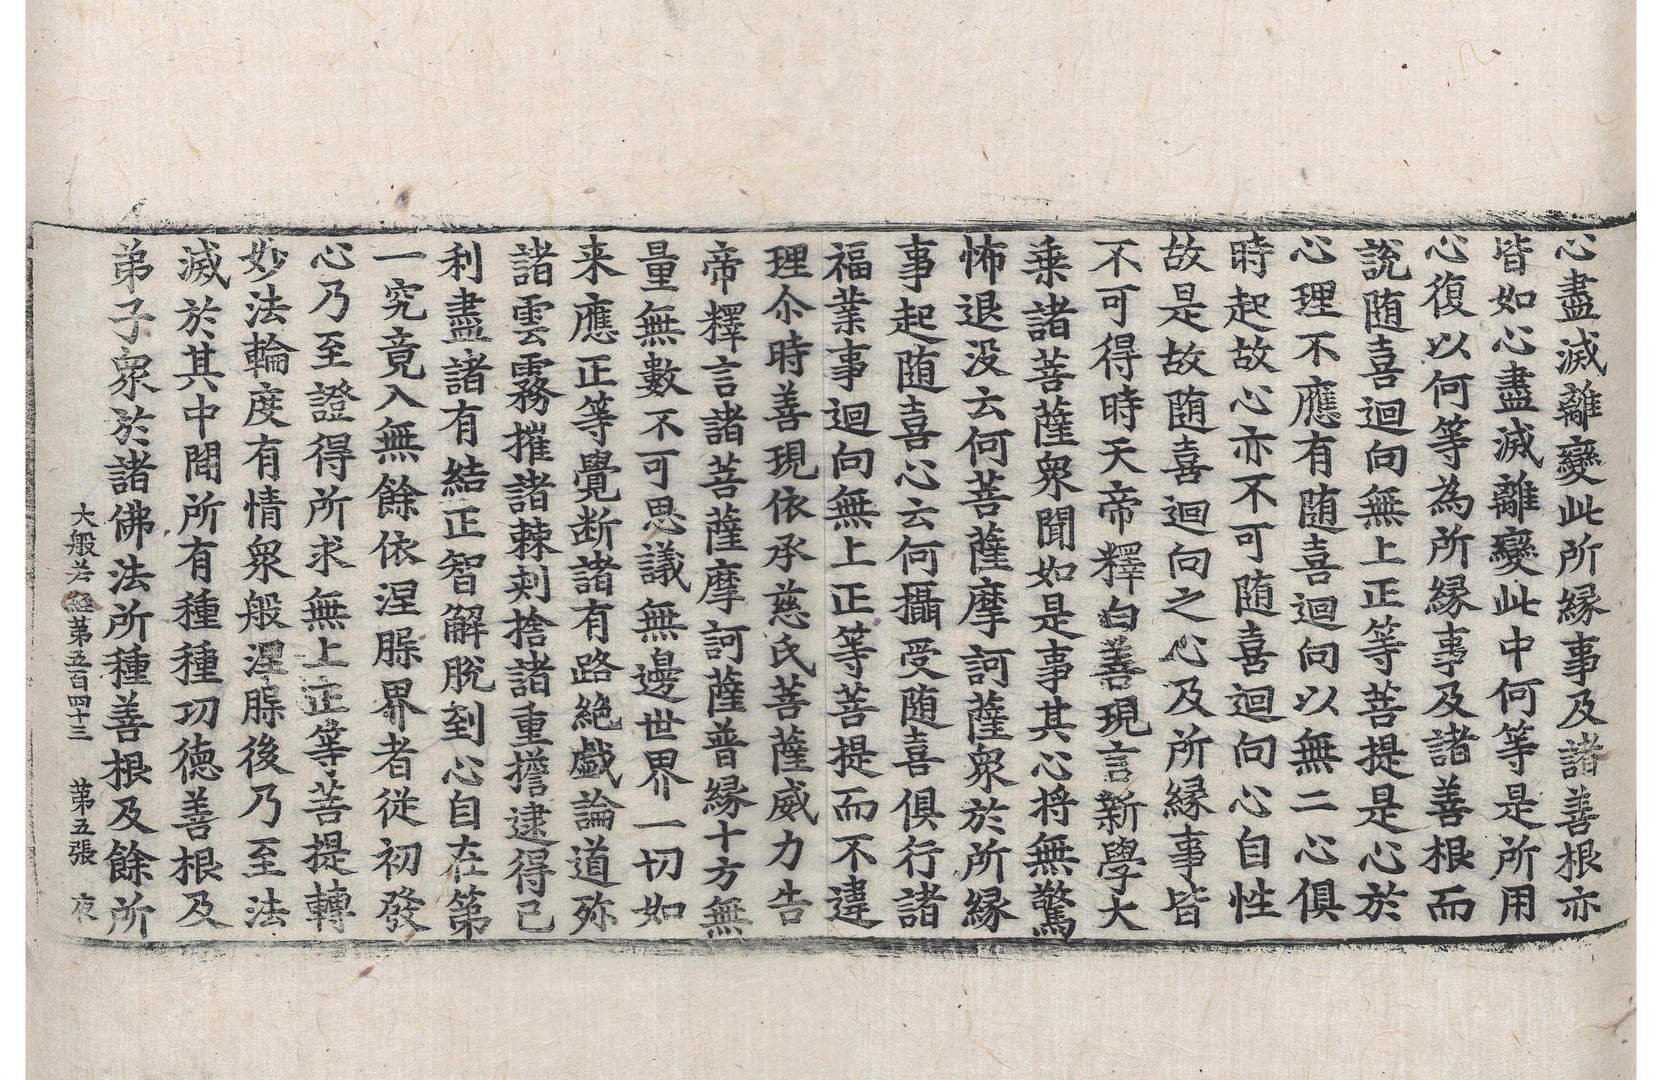 心盡滅離變此所縁事及諸善根亦
皆如心盡滅離變此中何等是所用
心復以何等為所縁事及諸善根而
說随喜迴向無上正等菩提是心於
心理不應有随喜迴向以無二心俱
時起故心亦不可随喜迴向心自性
故是故随喜迴向之心及所縁事皆
不可得時天帝釋白善現言新學大
乗諸菩薩衆聞如是事其心将無驚
怖退没云何菩薩摩訶薩衆於所縁
事起随喜心云何攝受随喜俱行諸
福業事迴向無上正等菩提而不違
理尒時善現依承慈氏菩薩威力告
帝釋言諸菩薩摩訶薩普縁十方無
量無數不可思議無邊世界一切如
来應正等覺断諸有路絶戱論道殄
諸雲霧摧諸棘刾捨諸重擔逮得己
利盡諸有結正智解脫到心自在第
一究竟入無餘依涅槃界者從初發
心乃至證得所求無上正等菩提轉
妙法輪度有情衆般涅槃後乃至法
滅於其中閒所有種種功德善根及
弟子衆於諸佛法所種善根及餘所
大般若經第五百四十三 第五張 夜